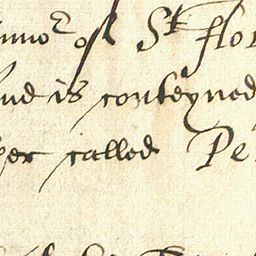 of St Flor
and is conteyned
per called Pe